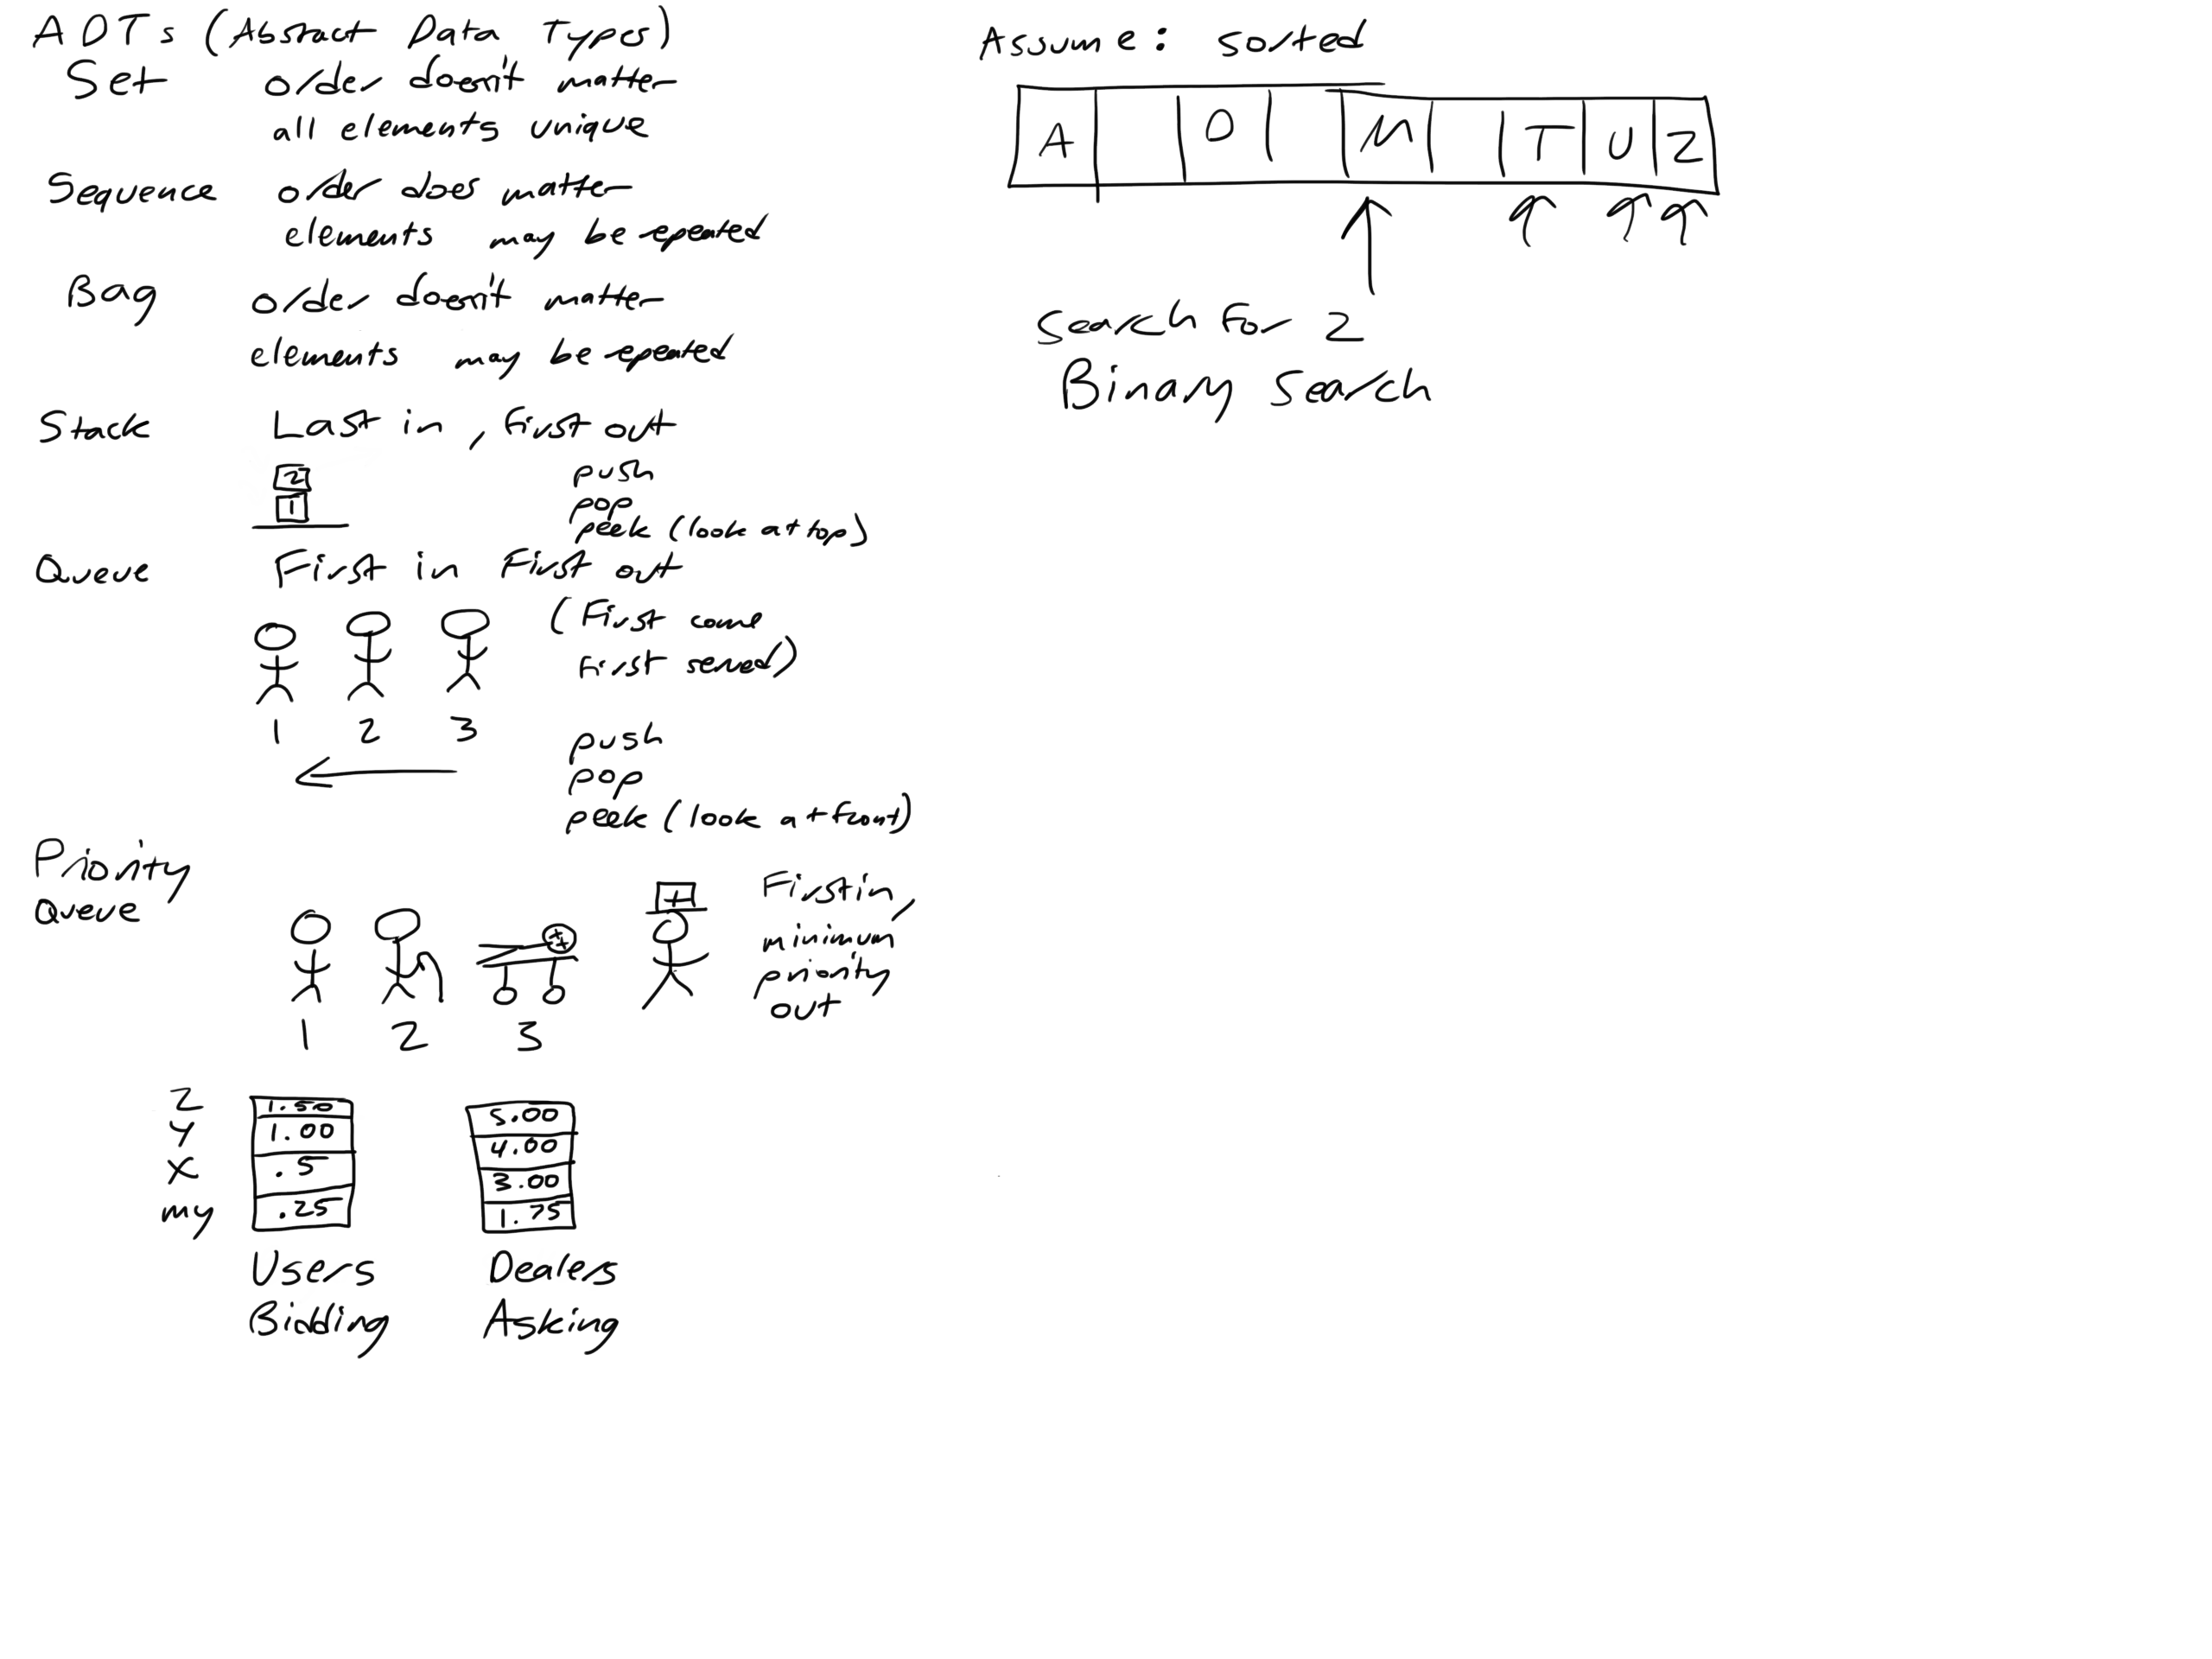 ADTs (Abstract Data Types)
Set order doesn't matter
all elements unique
Sequence order does matter
elements may be repeated
Bag order doesn't matter
elements may be repeated
Stack Last in, first out
2
1
push
pop
peek (look at top)
Queue First in First out
(First come
First served)
1 2 3
push
pop
peek (look at front)
Priority
Queue
+
First in,
minimum
priority
out
1 2 3
Z 1.50 5.00
Y 1.00 4.00
X .5 3.00
my .25 1.75
Users Dealers
Bidding Asking
Assume: sorted
A D M T U Z
Search for Z
Binary Search